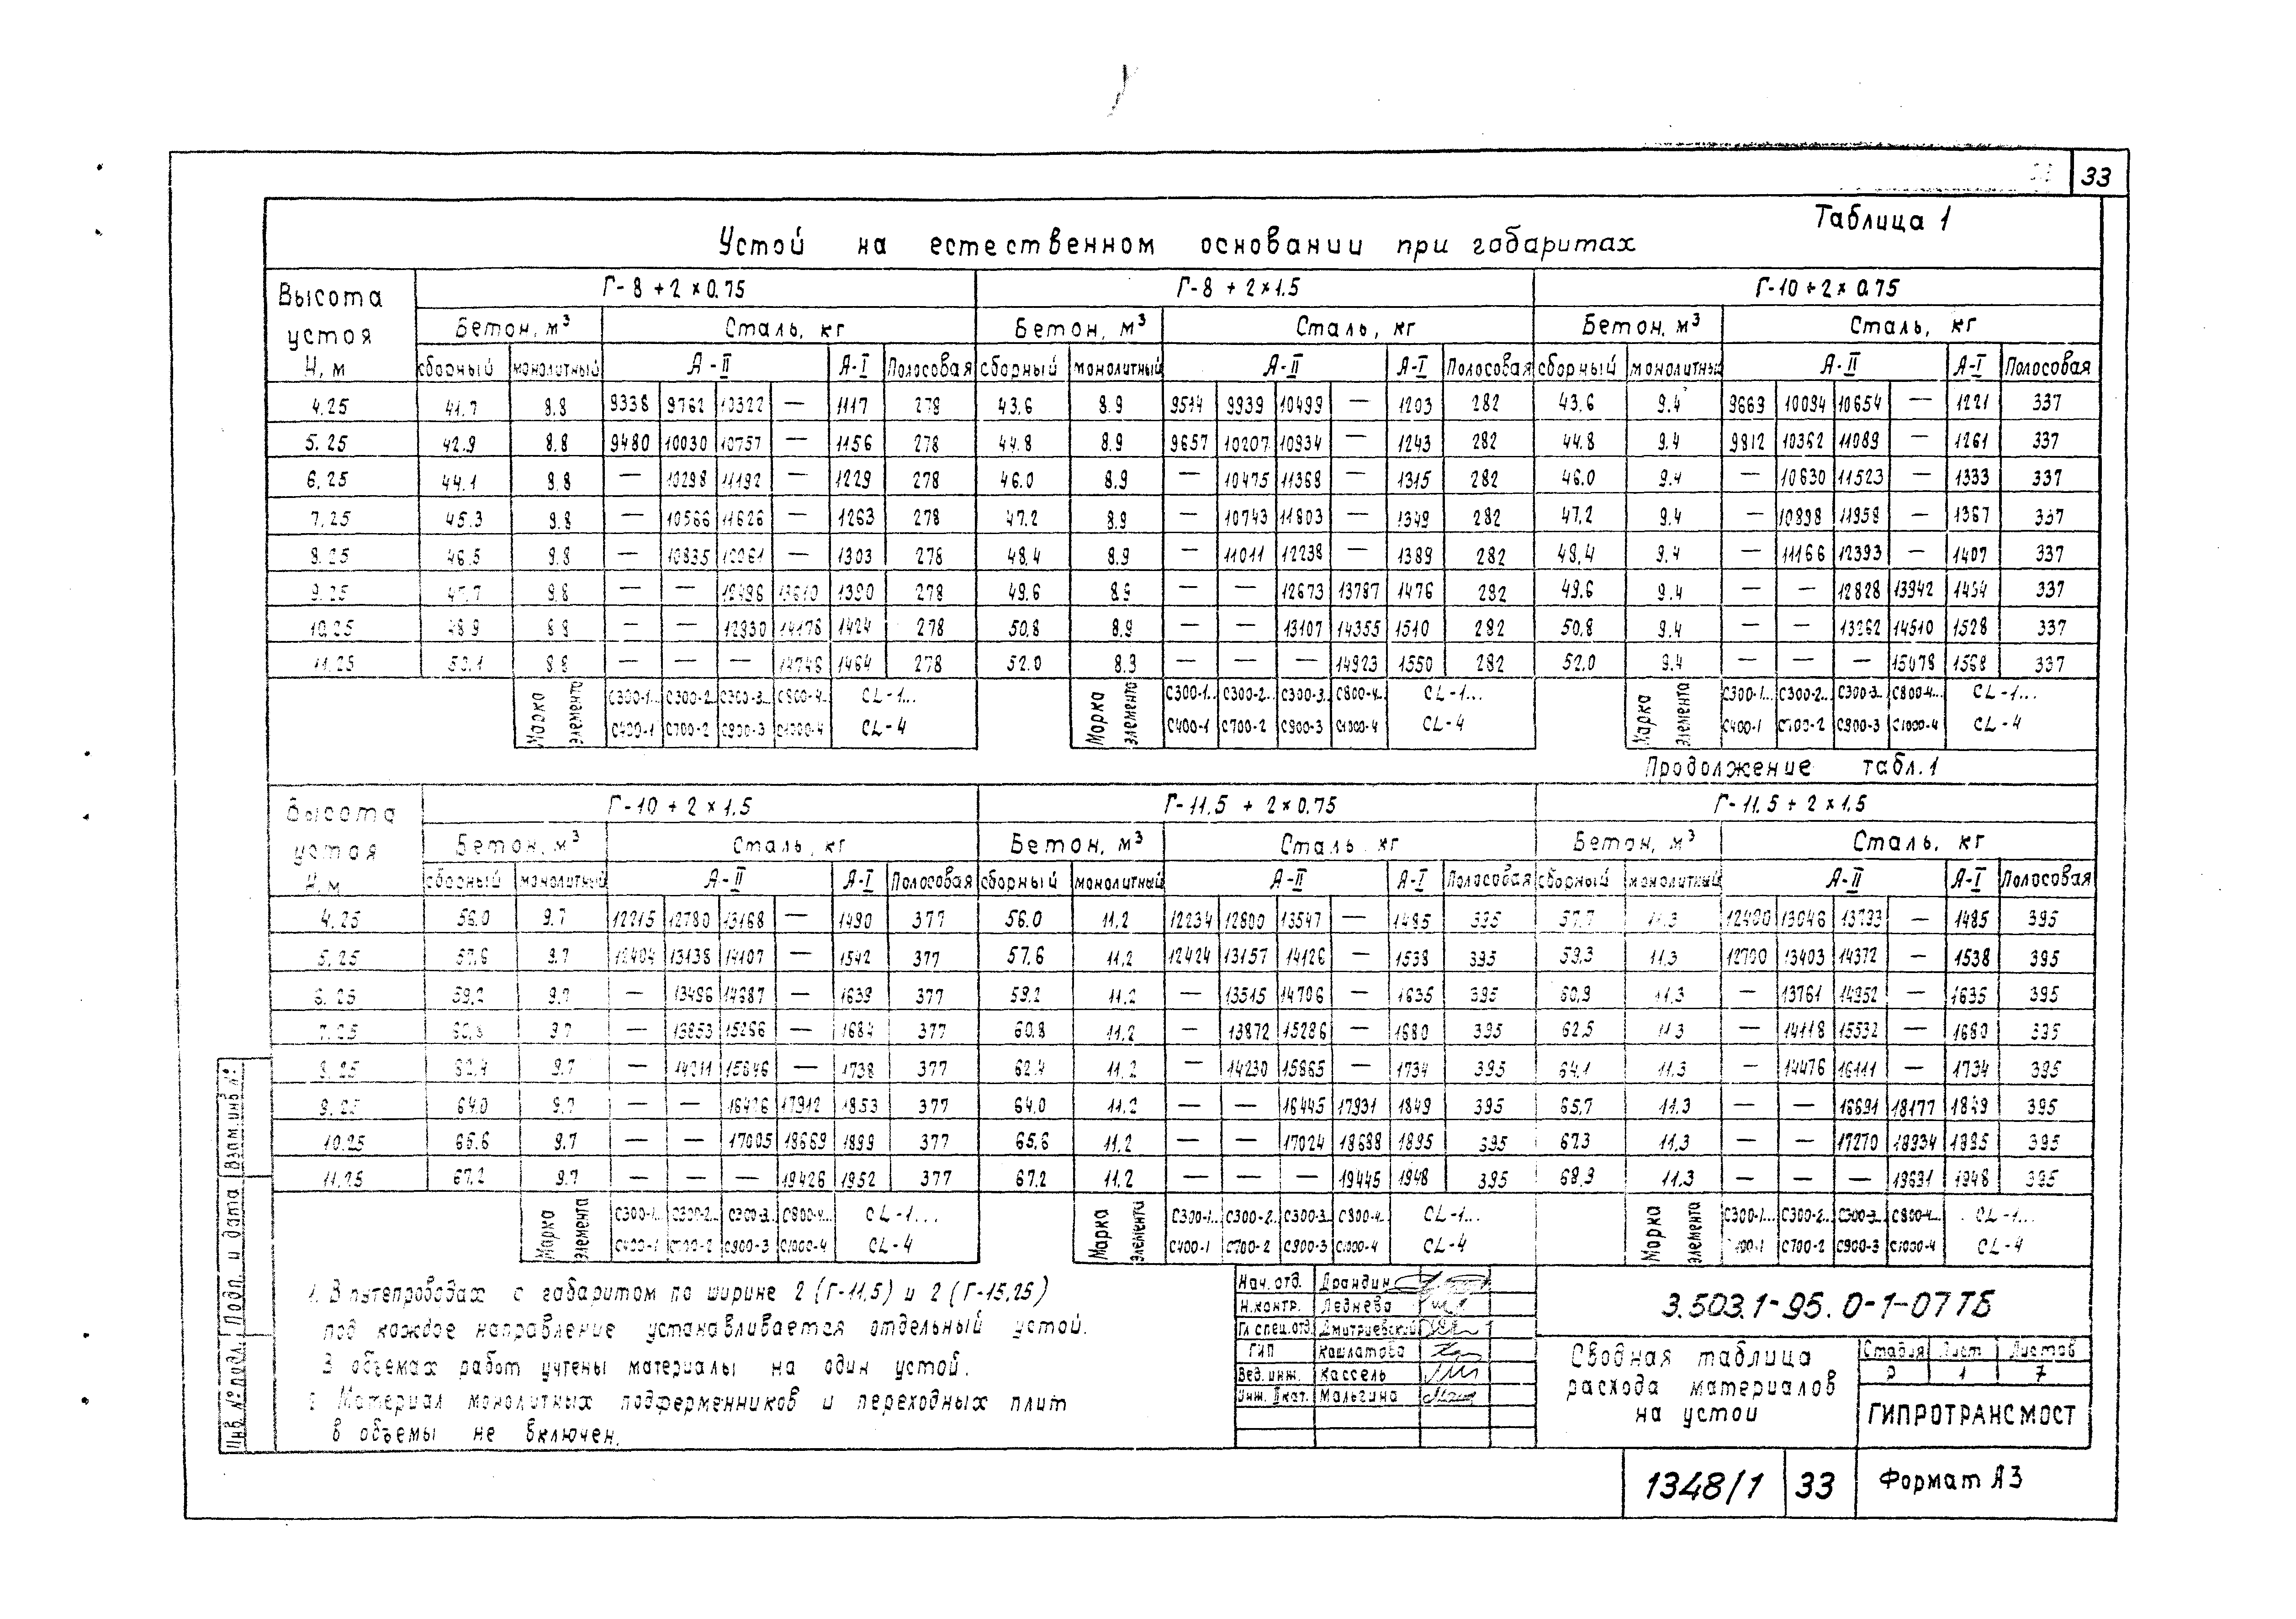 33
Таблица 1
Устой на естественном основании при габаритах
Высота устоя Н, м | Г-8+2×0.75 | Г-8+2×1.5 | Г-10+2×0.75
Бетон, м³ | Сталь, кг | Бетон, м³ | Сталь, кг | Бетон, м³ | Сталь, кг
сборный | монолитный | А-II | А-I | Полосовая | сборный | монолитный | А-II | А-I | Полосовая | сборный | монолитный | А-II | А-I | Полосовая
4.25 | 41.7 | 8.8 | 9338 | 9762 | 10322 | — | 1117 | 278 | 43.6 | 8.9 | 9514 | 9939 | 10499 | — | 1203 | 282 | 43.6 | 9.4 | 9669 | 10094 | 10654 | — | 1221 | 337
5.25 | 42.9 | 8.8 | 9480 | 10030 | 10757 | — | 1156 | 278 | 44.8 | 8.9 | 9657 | 10207 | 10934 | — | 1243 | 282 | 44.8 | 9.4 | 9812 | 10362 | 11089 | — | 1261 | 337
6.25 | 44.1 | 8.8 | — | 10298 | 11192 | — | 1229 | 278 | 46.0 | 8.9 | — | 10475 | 11368 | — | 1315 | 282 | 46.0 | 9.4 | — | 10630 | 11523 | — | 1333 | 337
7.25 | 45.3 | 8.8 | — | 10566 | 11626 | — | 1263 | 278 | 47.2 | 8.9 | — | 10743 | 11803 | — | 1349 | 282 | 47.2 | 9.4 | — | 10898 | 11958 | — | 1367 | 337
8.25 | 46.5 | 8.8 | — | 10835 | 12061 | — | 1303 | 278 | 48.4 | 8.9 | — | 11011 | 12238 | — | 1389 | 282 | 48.4 | 9.4 | — | 11166 | 12393 | — | 1407 | 337
9.25 | 47.7 | 8.8 | — | — | 12496 | 13610 | 1390 | 278 | 49.6 | 8.9 | — | — | 12673 | 13787 | 1476 | 282 | 49.6 | 9.4 | — | — | 12828 | 13942 | 1494 | 337
10.25 | 48.9 | 8.8 | — | — | 12930 | 14178 | 1424 | 278 | 50.8 | 8.9 | — | — | 13107 | 14355 | 1510 | 282 | 50.8 | 9.4 | — | — | 13262 | 14510 | 1528 | 337
11.25 | 50.1 | 8.8 | — | — | — | 14746 | 1464 | 278 | 52.0 | 8.9 | — | — | — | 14923 | 1550 | 282 | 52.0 | 9.4 | — | — | — | 15078 | 1568 | 337
Марка элемента | С300-1... | С300-2... | С300-3... | С800-4... | СL-1... | Марка элемента | С300-1... | С300-2... | С300-3... | С800-4... | СL-1... | Марка элемента | С300-1... | С300-2... | С300-3... | С800-4... | СL-1...
С400-1 | С700-2 | С900-3 | С1000-4 | СL-4 | С400-1 | С700-2 | С900-3 | С1000-4 | СL-4 | С400-1 | С700-2 | С900-3 | С1000-4 | СL-4
Продолжение табл.1
Высота устоя Н, м | Г-10+2×1.5 | Г-11.5+2×0.75 | Г-11.5+2×1.5
Бетон, м³ | Сталь, кг | Бетон, м³ | Сталь, кг | Бетон, м³ | Сталь, кг
сборный | монолитный | А-II | А-I | Полосовая | сборный | монолитный | А-II | А-I | Полосовая | сборный | монолитный | А-II | А-I | Полосовая
4.25 | 56.0 | 9.7 | 12215 | 12780 | — | 1490 | 377 | 56.0 | 11.2 | 12234 | 12800 | 13547 | — | 1485 | 395 | 57.7 | 11.3 | 12480 | 13046 | 13793 | — | 1485 | 395
5.25 | 57.6 | 9.7 | 12404 | 13138 | 14107 | — | 1542 | 377 | 57.6 | 11.2 | 12424 | 13157 | 14126 | — | 1538 | 395 | 59.3 | 11.3 | 13403 | 14372 | — | 1538 | 395
6.25 | 59.2 | 9.7 | — | 13496 | 14687 | — | 1639 | 377 | 59.2 | 11.2 | — | 13515 | 14706 | — | 1635 | 395 | 60.9 | 11.3 | — | 13761 | 14952 | — | 1635 | 395
7.25 | 60.8 | 9.7 | — | 13853 | 15266 | — | 1684 | 377 | 60.8 | 11.2 | — | 13872 | 15286 | — | 1680 | 395 | 62.5 | 11.3 | — | 14118 | 15532 | — | 1680 | 395
8.25 | 62.4 | 9.7 | — | 14211 | 15846 | — | 1738 | 377 | 62.4 | 11.2 | — | 14230 | 15865 | — | 1734 | 395 | 64.1 | 11.3 | — | 14476 | 16111 | — | 1734 | 395
9.25 | 64.0 | 9.7 | — | — | 16426 | 17912 | 1853 | 377 | 64.0 | 11.2 | — | — | 16445 | 17931 | 1849 | 395 | 65.7 | 11.3 | — | — | 16691 | 18177 | 1849 | 395
10.25 | 65.6 | 9.7 | — | — | 17005 | 18669 | 1899 | 377 | 65.6 | 11.2 | — | — | 17024 | 18688 | 1895 | 395 | 67.3 | 11.3 | — | — | 17270 | 18934 | 1895 | 395
11.25 | 67.2 | 9.7 | — | — | — | 19426 | 1952 | 377 | 67.2 | 11.2 | — | — | — | 19445 | 1948 | 395 | 68.9 | 11.3 | — | — | — | 19691 | 1948 | 395
Марка элемента | С300-1... | С300-2... | С300-3... | С800-4... | СL-1... | Марка элемента | С300-1... | С300-2... | С300-3... | С800-4... | СL-1... | Марка элемента | С300-1... | С300-2... | С300-3... | С800-4... | СL-1...
С400-1 | С700-2 | С900-3 | С1000-4 | СL-4 | С400-1 | С700-2 | С900-3 | С1000-4 | СL-4 | С400-1 | С700-2 | С900-3 | С1000-4 | СL-4
1. В путепроводах с габаритом по ширине 2 (Г-11,5) и 2 (Г-15,25)
под каждое направление устанавливается отдельный устой.
В объемах работ учтены материалы на один устой.
2. Материал монолитных подферменников и переходных плит
в объемы не включен.
Взам. инв №
Подп. и дата
Инв. № подл.
Нач. отд. Драндин
Н.контр. Леднева
Гл спец.отд. Дмитриевский
ГИП Кашлатова
Вед. инж. Кассель
Инж. IIкат. Мальгина
3.503.1-95.0-1-07ТБ
Сводная таблица
расхода материалов
на устои
Стадия | Лист | Листов
Р | 1 | 7
ГИПРОТРАНСМОСТ
1348/1 33
Формат А3